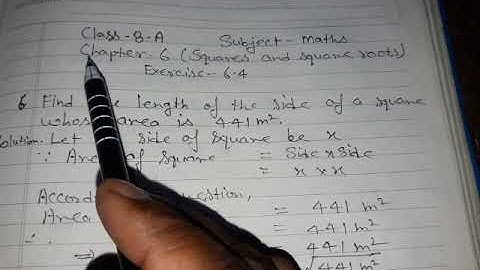 Class-8-A Subject-Maths
Chapter-6 (Squares and square roots)
Exercise-6.4
6 Find the length of the side of a square
whose area is 441 m².
Solution. Let side of square be x
∵ Area of square = Side x Side
= x x x
According question,
Area = 441 m²
∴ = 441 m²
⇒ 441 m²
√441 m²